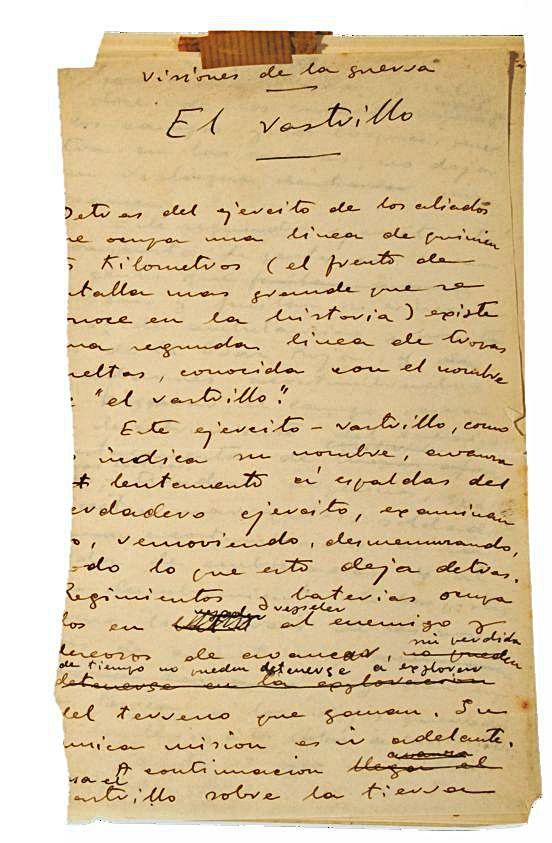 Visiones de la guerra
El rastrillo
Detras del ejercito de los aliados
ue ocupa una linea de quinien
s Kilometros (el frente de
atalla mas grande que se
onoce en la historia) existe
na segunda linea de tropas
ueltas, conocida con el nombre
e "el rastrillo".
Este ejercito-rastrillo, como
o indica su nombre, avanza
lentamente á espaldas del
erdadero ejercito, examinan
o, removiendo, desmenuzando,
odo lo que este deja detras.
Regimientos y baterias ocupa
dos en repeler al enemigo y
deseosos de avanzar, sin perdida
de tiempo no pueden detenerse á explorar
detenerse en la exploracion
del terreno que ganan. Su
unica mision es ir adelante.
A continuacion llega el
avanza
asa el
rastrillo sobre la tierra